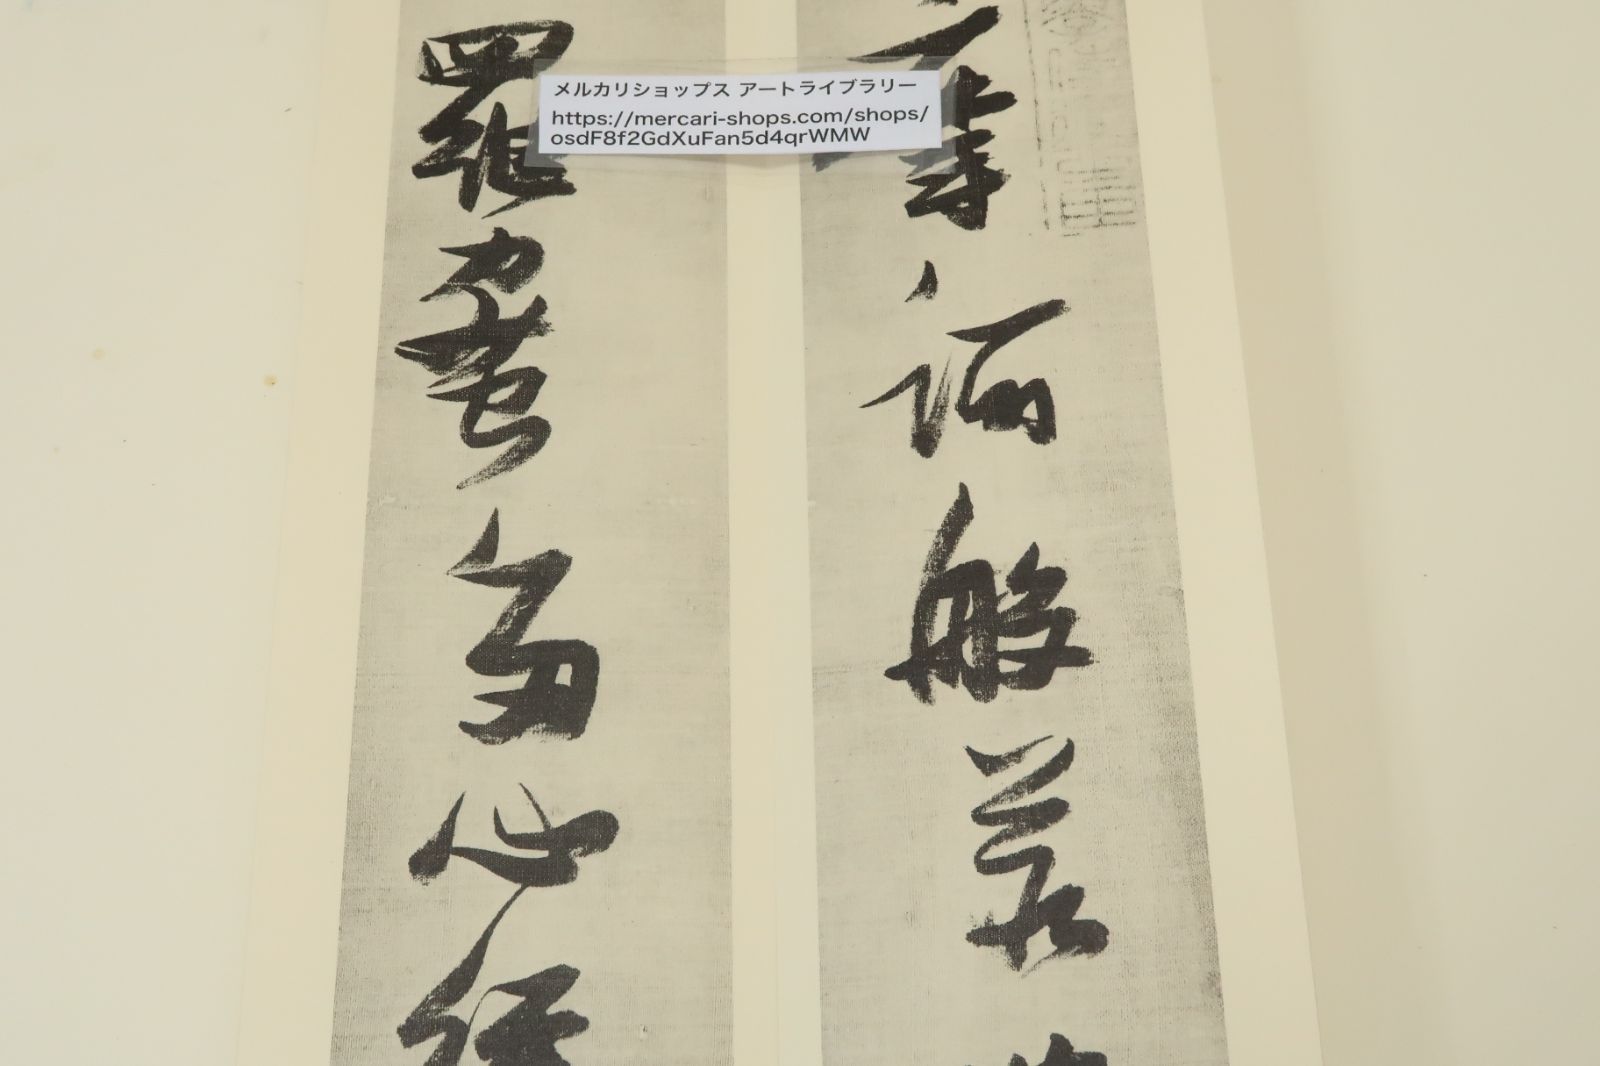 摩訶般若
羅蜜多心経
メルカリショップス アートライブラリー
https://mercari-shops.com/shops/
osdF8f2GdXuFan5d4qrWMW